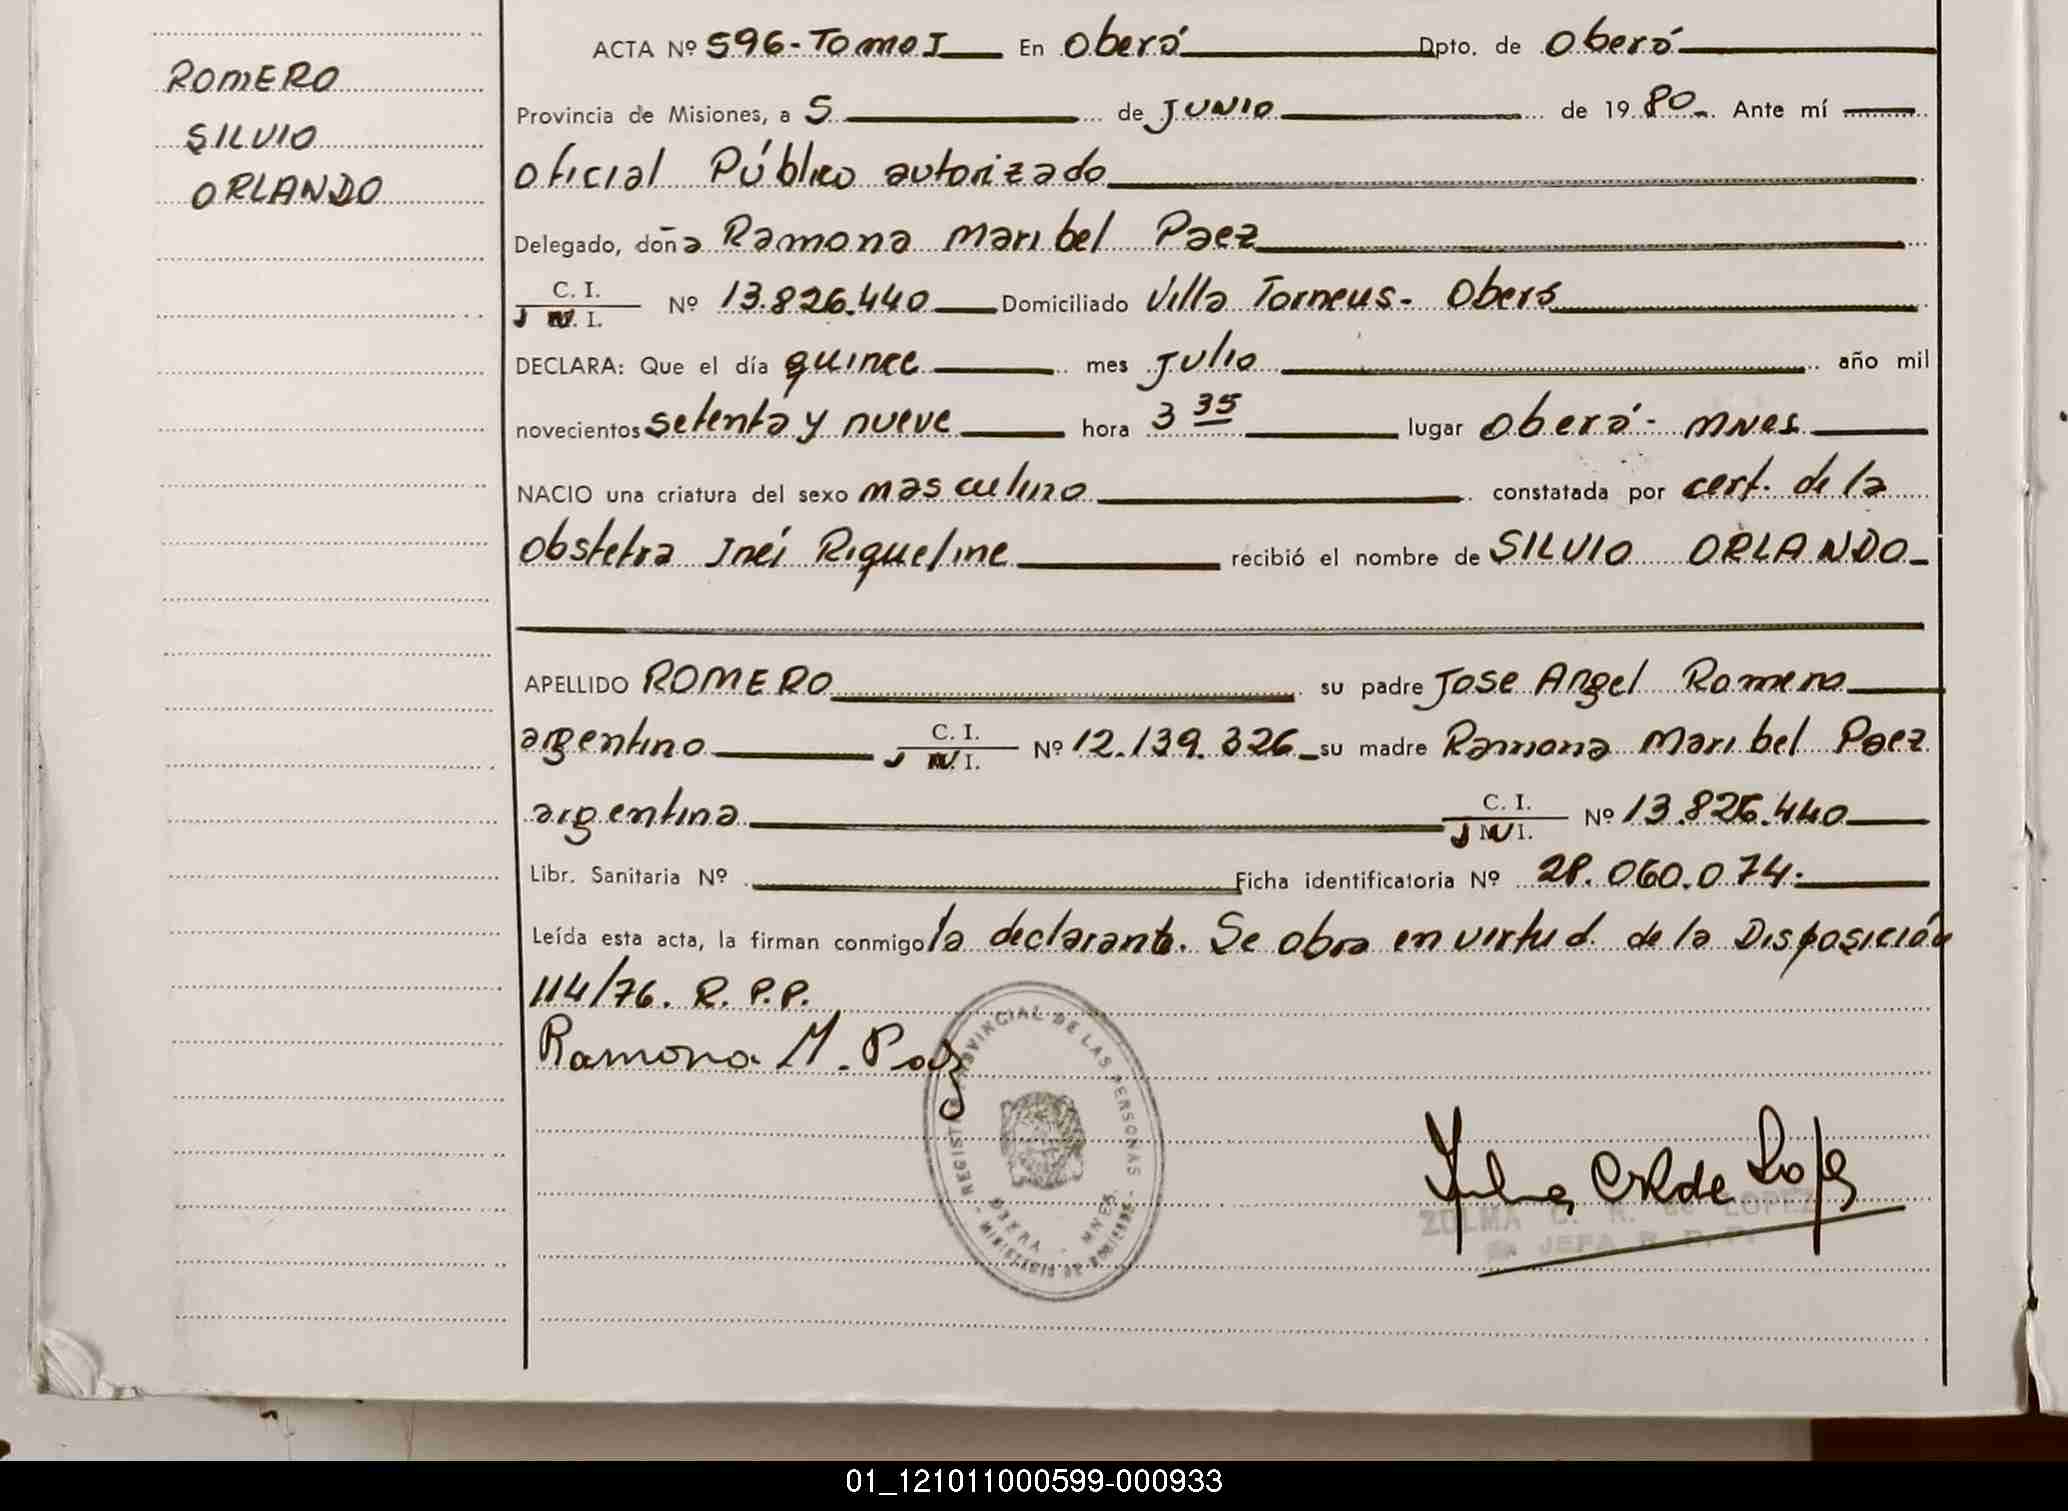 ROMERO
SILVIO
ORLANDO
ACTA Nº 596-Tomo I En Oberá Dpto. de Oberá
Provincia de Misiones, a 5 de JUNIO de 1980. Ante mí
Oficial Público autorizado
Delegado, doña Ramona Maribel Paez
C. I.
Nº 13.826.440 Domiciliado Villa Torneus - Oberá
DECLARA: Que el día quince mes Julio año mil
novecientos setenta y nueve hora 3 35 lugar Oberá - MNes
NACIO una criatura del sexo masculino constatada por cert. de la
Obstetra Inés Riqueline recibió el nombre de SILVIO ORLANDO
APELLIDO ROMERO su padre Jose Angel Romero
argentino C. I. Nº 12.139.326 su madre Ramona Maribel Paez
argentina C. I. Nº 13.826.440
Libr. Sanitaria Nº Ficha identificatoria Nº 28.060.074.
Leída esta acta, la firman conmigo la declarante. Se obra en virtud de la Disposición
114/76. R. P.P.
Ramona M. Paez
REGISTRO PROVINCIAL DE LAS PERSONAS
OBERA - MNES
MINISTERIO DE GOBIERNO
ZULMA C. R. de LOPEZ
JEFA R. P. P.
01_121011000599-000933